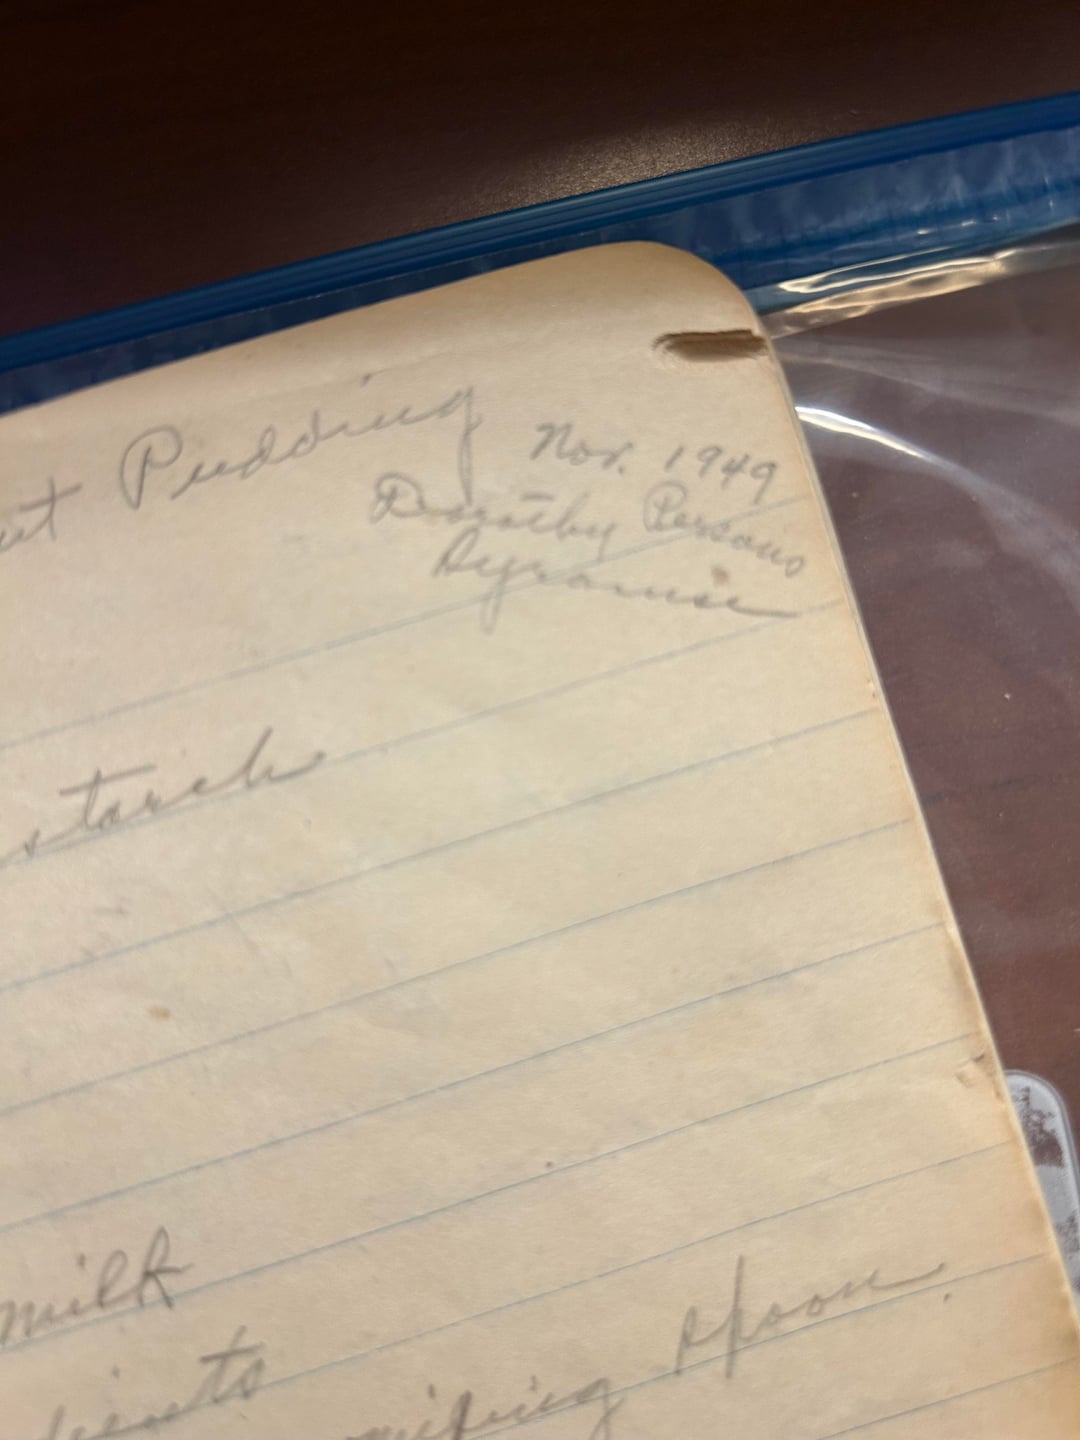 ut Pudding
Nov. 1949
Dorothy Persons
starch
milk
dients
mixing spoon.